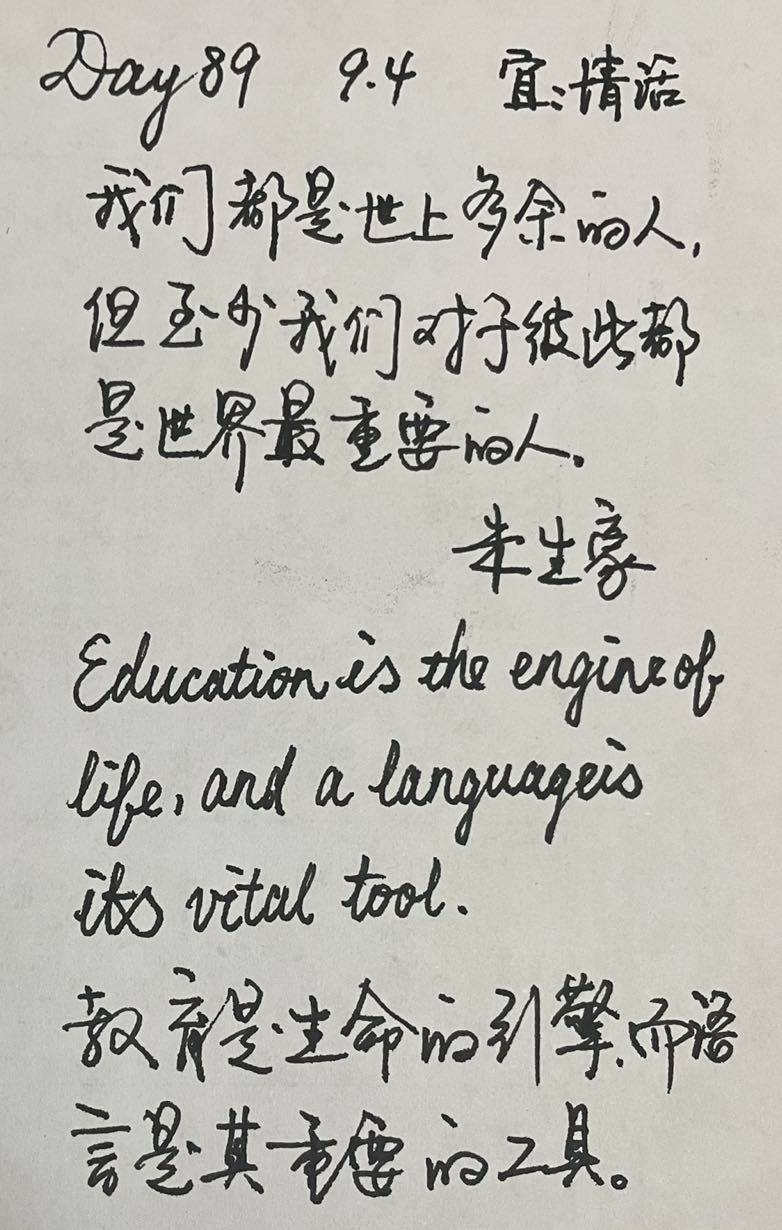 Day 89 9.4 宜:情话
我们都是世上多余的人,
但至少我们对于彼此都
是世界最重要的人。
朱生豪
Education is the engine of
life, and a language is
its vital tool.
教育是生命的引擎,而语
言是其重要的工具。